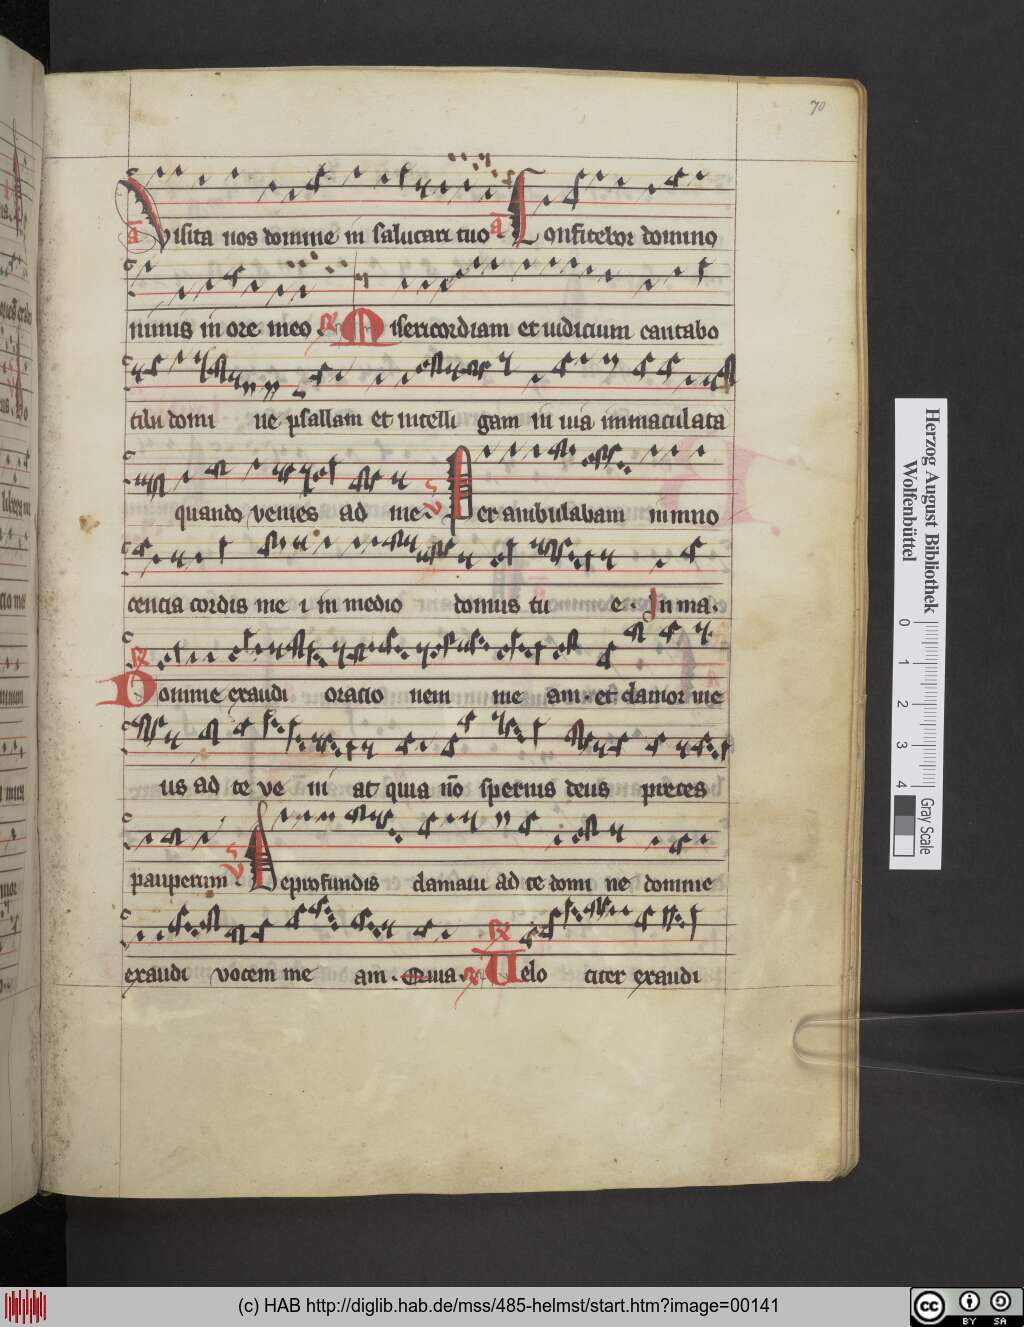 70
a Visita nos domine in salutari tuo · a Confitebor domino
nimis in ore meo · R Misericordiam et iudicium cantabo
tibi domi ne psallam et intelli gam in uia immaculata
quando venies ad me · V Perambulabam in inno
centia cordis me i in medio domus tu e · In ma ·
R Domine exaudi oratio nem me am · et clamor me
us ad te ve ni at quia nō spernis deus preces
pauperum · V De profundis clamaui ad te domi ne domine
exaudi vocem me am · Quia · R Velo citer exaudi
Herzog August Bibliothek
Wolfenbüttel
0 1 2 3 4
Gray Scale
(c) HAB http://diglib.hab.de/mss/485-helmst/start.htm?image=00141
cc BY SA